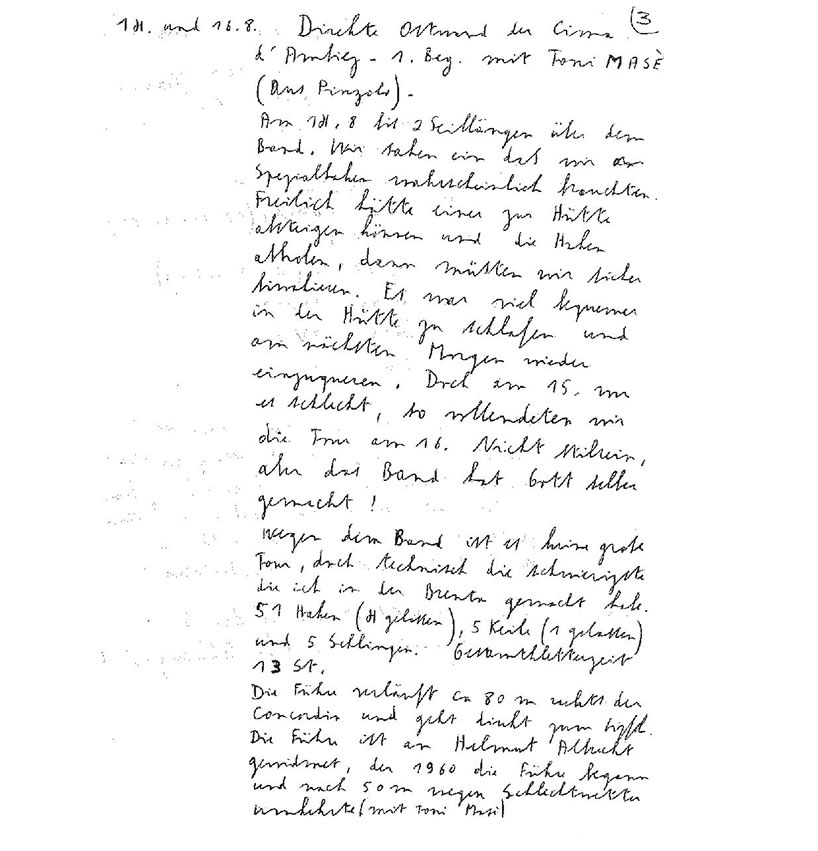 3
14. und 16.8. Direkte Ostwand der Cima
d'Ambiez - 1. Beg. mit Toni MASÈ
(Aus Pinzolo) -
Am 14. 8 bis 2 Seillängen über dem
Band. Wir sahen ein das wir
Spezialhaken wahrscheinlich brauchten.
Freilich hätte einer zur Hütte
absteigen können und die Haken
abholen, dann müßten wir sicher
biwakieren. Es war viel bequemer
in der Hütte zu schlafen und
am nächsten Morgen wieder
einzuqueren. Doch am 15. war
es schlecht, so vollendeten wir
die Tour am 16. Nicht stilrein,
aber das Band hat Gott selber
gemacht!
Wegen dem Band ist es keine große
Tour, doch technisch die schwierigste
die ich in der Brenta gemacht habe.
51 Haken (4 gelassen), 5 Keile (1 gelassen)
und 5 Schlingen. Gesamtkletterzeit
13 St.
Die Führe verläuft ca 80 m rechts der
Concordia und geht direkt zum Gipfel.
Die Führe ist an Helmut Albrecht
gewidmet, der 1960 die Führe begann
und nach 50 m wegen Schlechtwetter
umkehrte (mit Toni Masè)